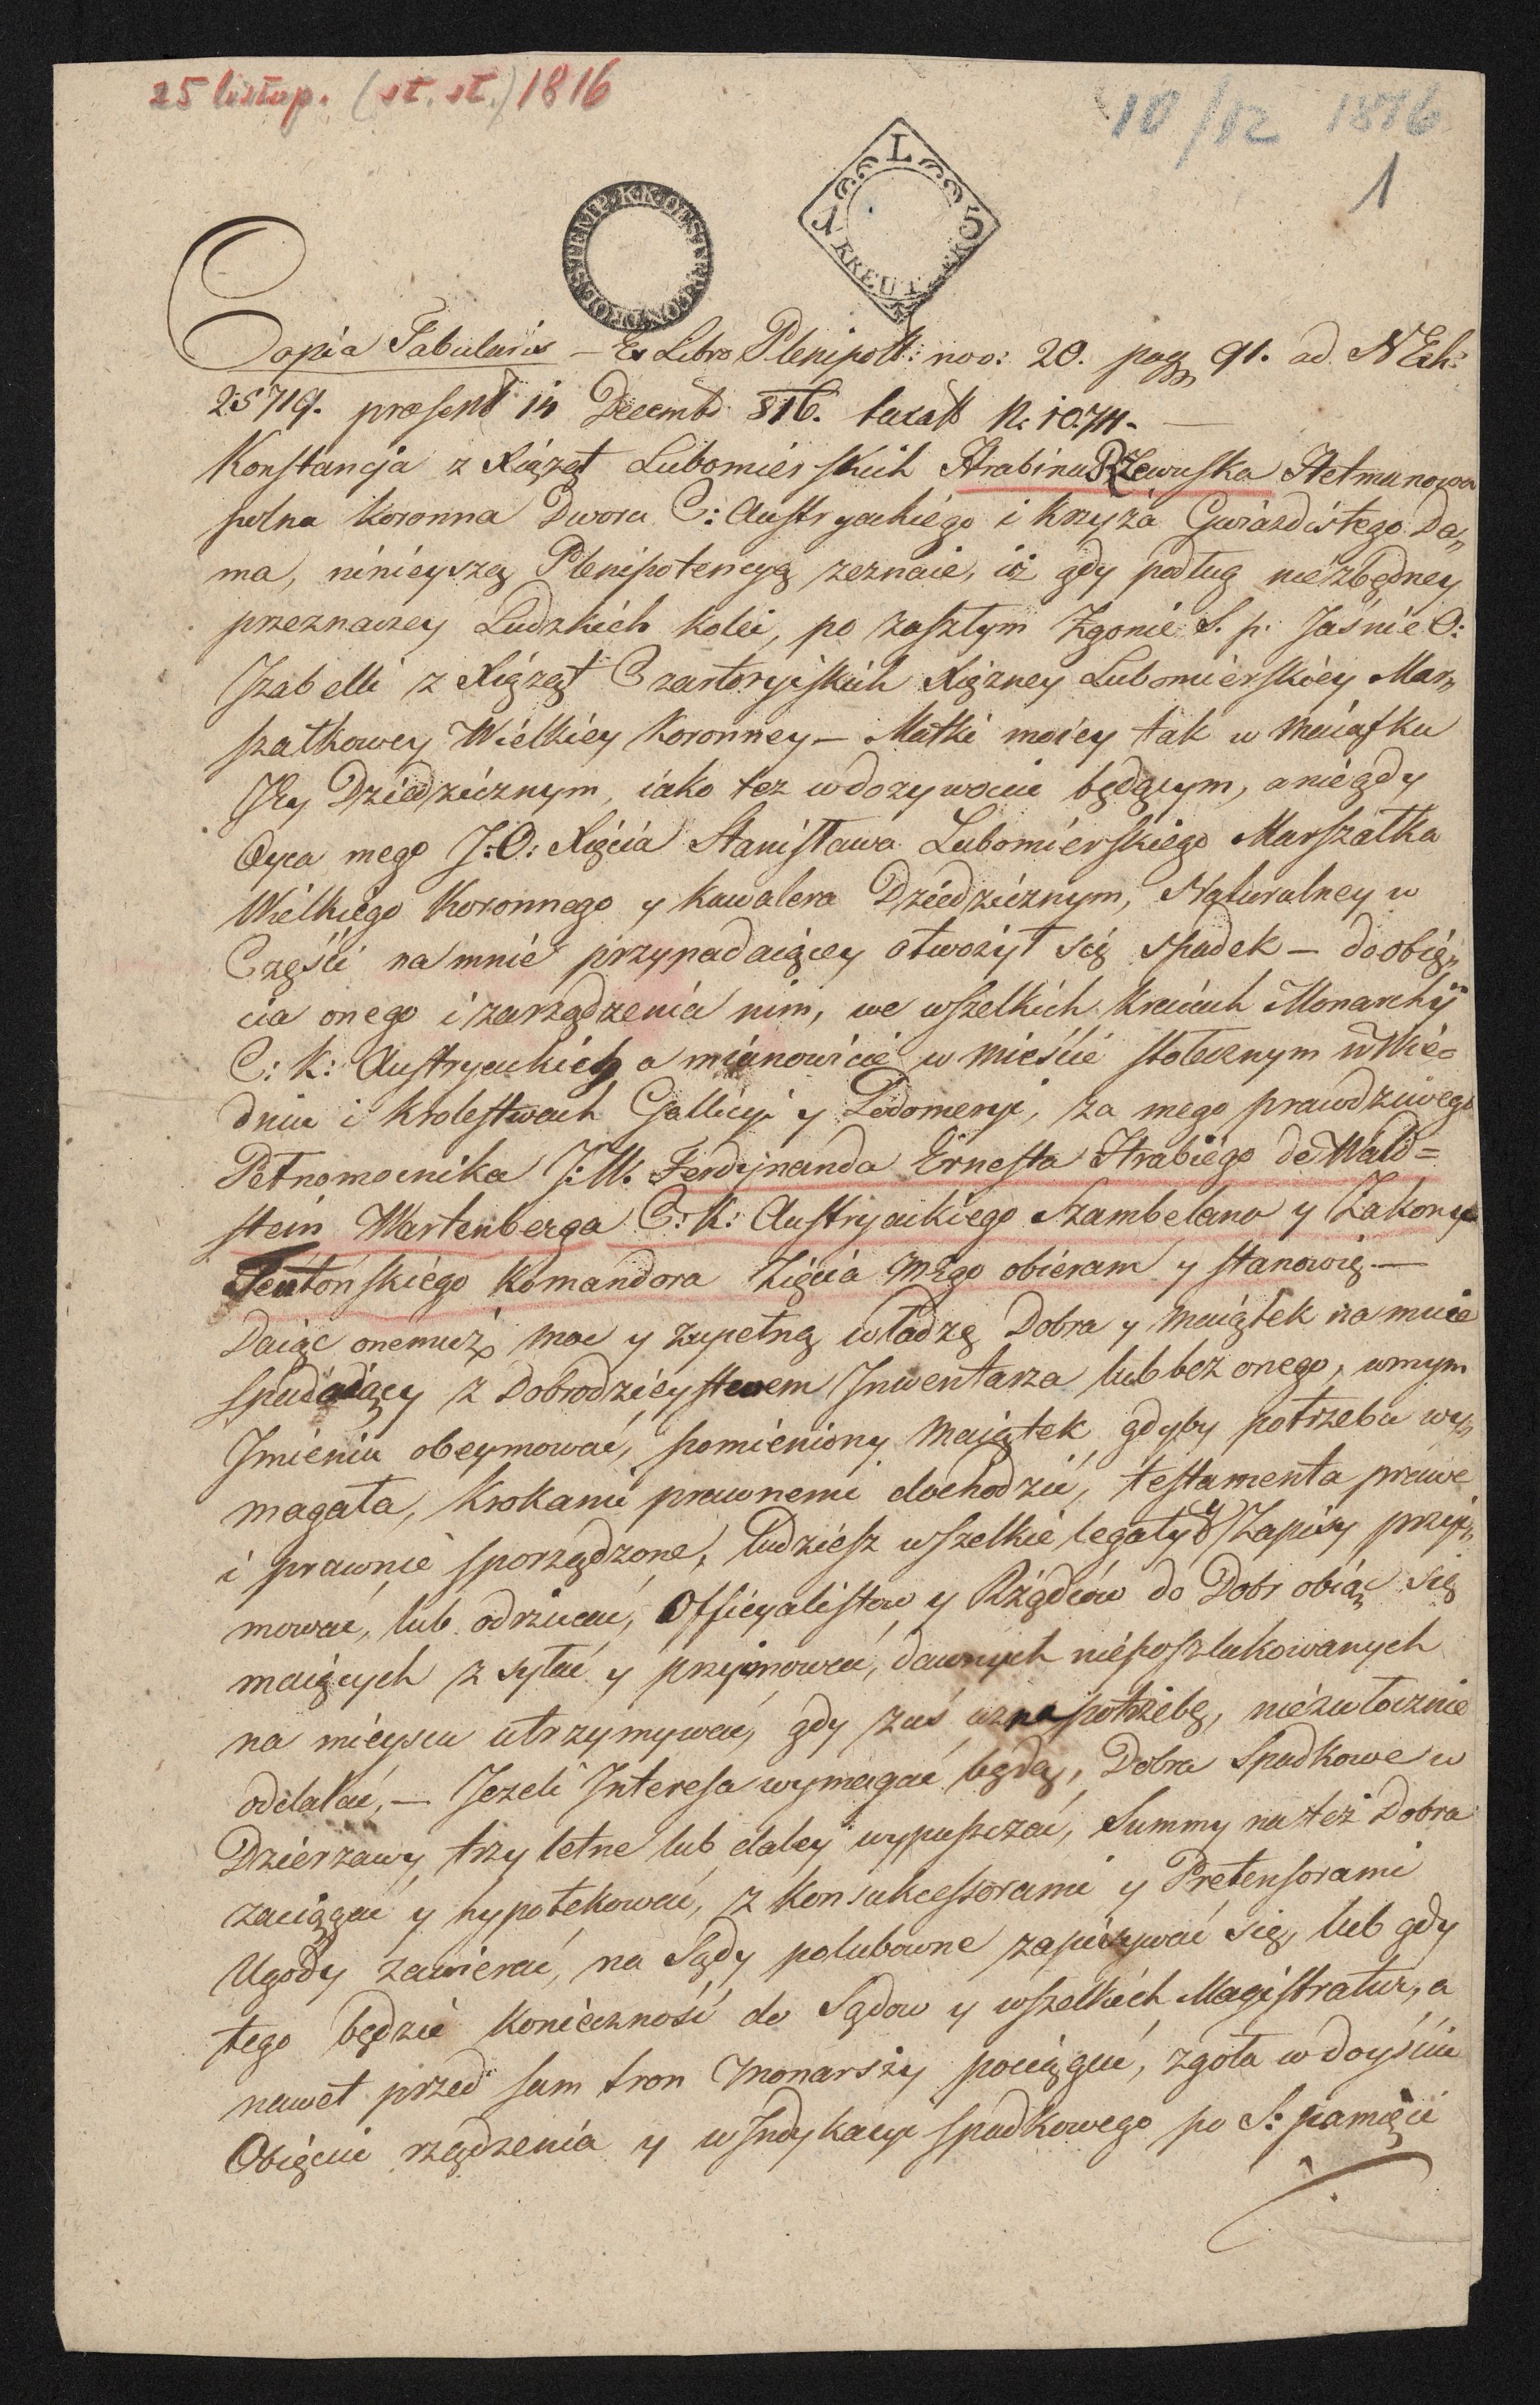 25 listop. (st. st.) 1816
10/12 1816
1
STEMP. K.K. OEST
L
KREUTZ
Copia Tabularis — Ex Libro Plenipott: nov: 20. pag 91. ad N Exh:
25719. praesent 14 Decembr 816. taxatt N. 1074. —
Konstancja z Xiążąt Lubomierskich Hrabina Rzewuska Hetmanowa
polna Koronna Dworu C: Austryackiego i Krzyża Gwiazdistego Da„
ma, ninieyszą Plenipotencyą zeznaie, iż gdy podług niezbędney
przeznaczey Ludzkich kolei, po zaszłym Zgonie S. p. Jaśnie O:
Izabelli z Xiążąt Czartoryiskich Xiężney Lubomierskiey Mar„
szałkowey Wielkiey Koronney — Matki moiey tak w Maiątku
Jey Dziedzicznym, iako też w dożywociu będącym, a niegdy
Oyca mego J: O: Xięcia Stanisława Lubomierskiego Marszałka
Wielkiego Koronnego y Kawalera Dziedzicznym, Naturalney w
Części na mnie przypadaiącey otworzył się spadek — do obię„
cia onego i zarządzenia nim, we wszelkich Kraiach Monarchÿ
C: K: Austryackich a mianowicie w Mieście stołecznym w Wie=
dniu i Krolestwach Gallicyi y Lodomeryi, za mego prawdziwego
Pełnomocnika J: W. Ferdynanda Ernesta Hrabiego de Wald=
stein Wartenberga C: K: Austryackiego Szambelana y Zakonu
Teutońskiego Komandora Zięcia mego obieram y stanowię —
Daiąc onemuż moc y zupełną władzę Dobra y Maiątek na mnie
spadaiący z Dobrodzieystwem Inwentarza lub bez onego, w mym
Imieniu obeymować, pomieniony Maiątek gdyby potrzeba wy„
magała, Krokami prawnemi dochodzić, testamenta prawe
i prawnie sporządzone, tudziesz wszelkie legaty y Zapisy przyi„
mować, lub odrzucać, Officyalistow y Rządców do Dobr obiąć się
maiących zsyłać y przyimować, dawnych nieposzlakowanych
na mieyscu utrzymywać, gdy zaś uzna potrzebę, niezwłocznie
oddalać, — Jeżeli Interesa wymagać będą, Dobra Spadkowe w
Dzierzawy trzyletne lub daley wypuszczać, Summy na też Dobra
zaciągać y hypotekować, z Konsukcessorami y Pretensorami
Ugody zawierać, na Sądy polubowne zapisywać się, lub gdy
tego będzie konieczność do Sądow y wszelkich Magistratur, a
nawet przed sam tron Monarszy pociągać, zgoła w doyściu
Obięciu rządzenia y windykacyi spadkowego po S: pamięci